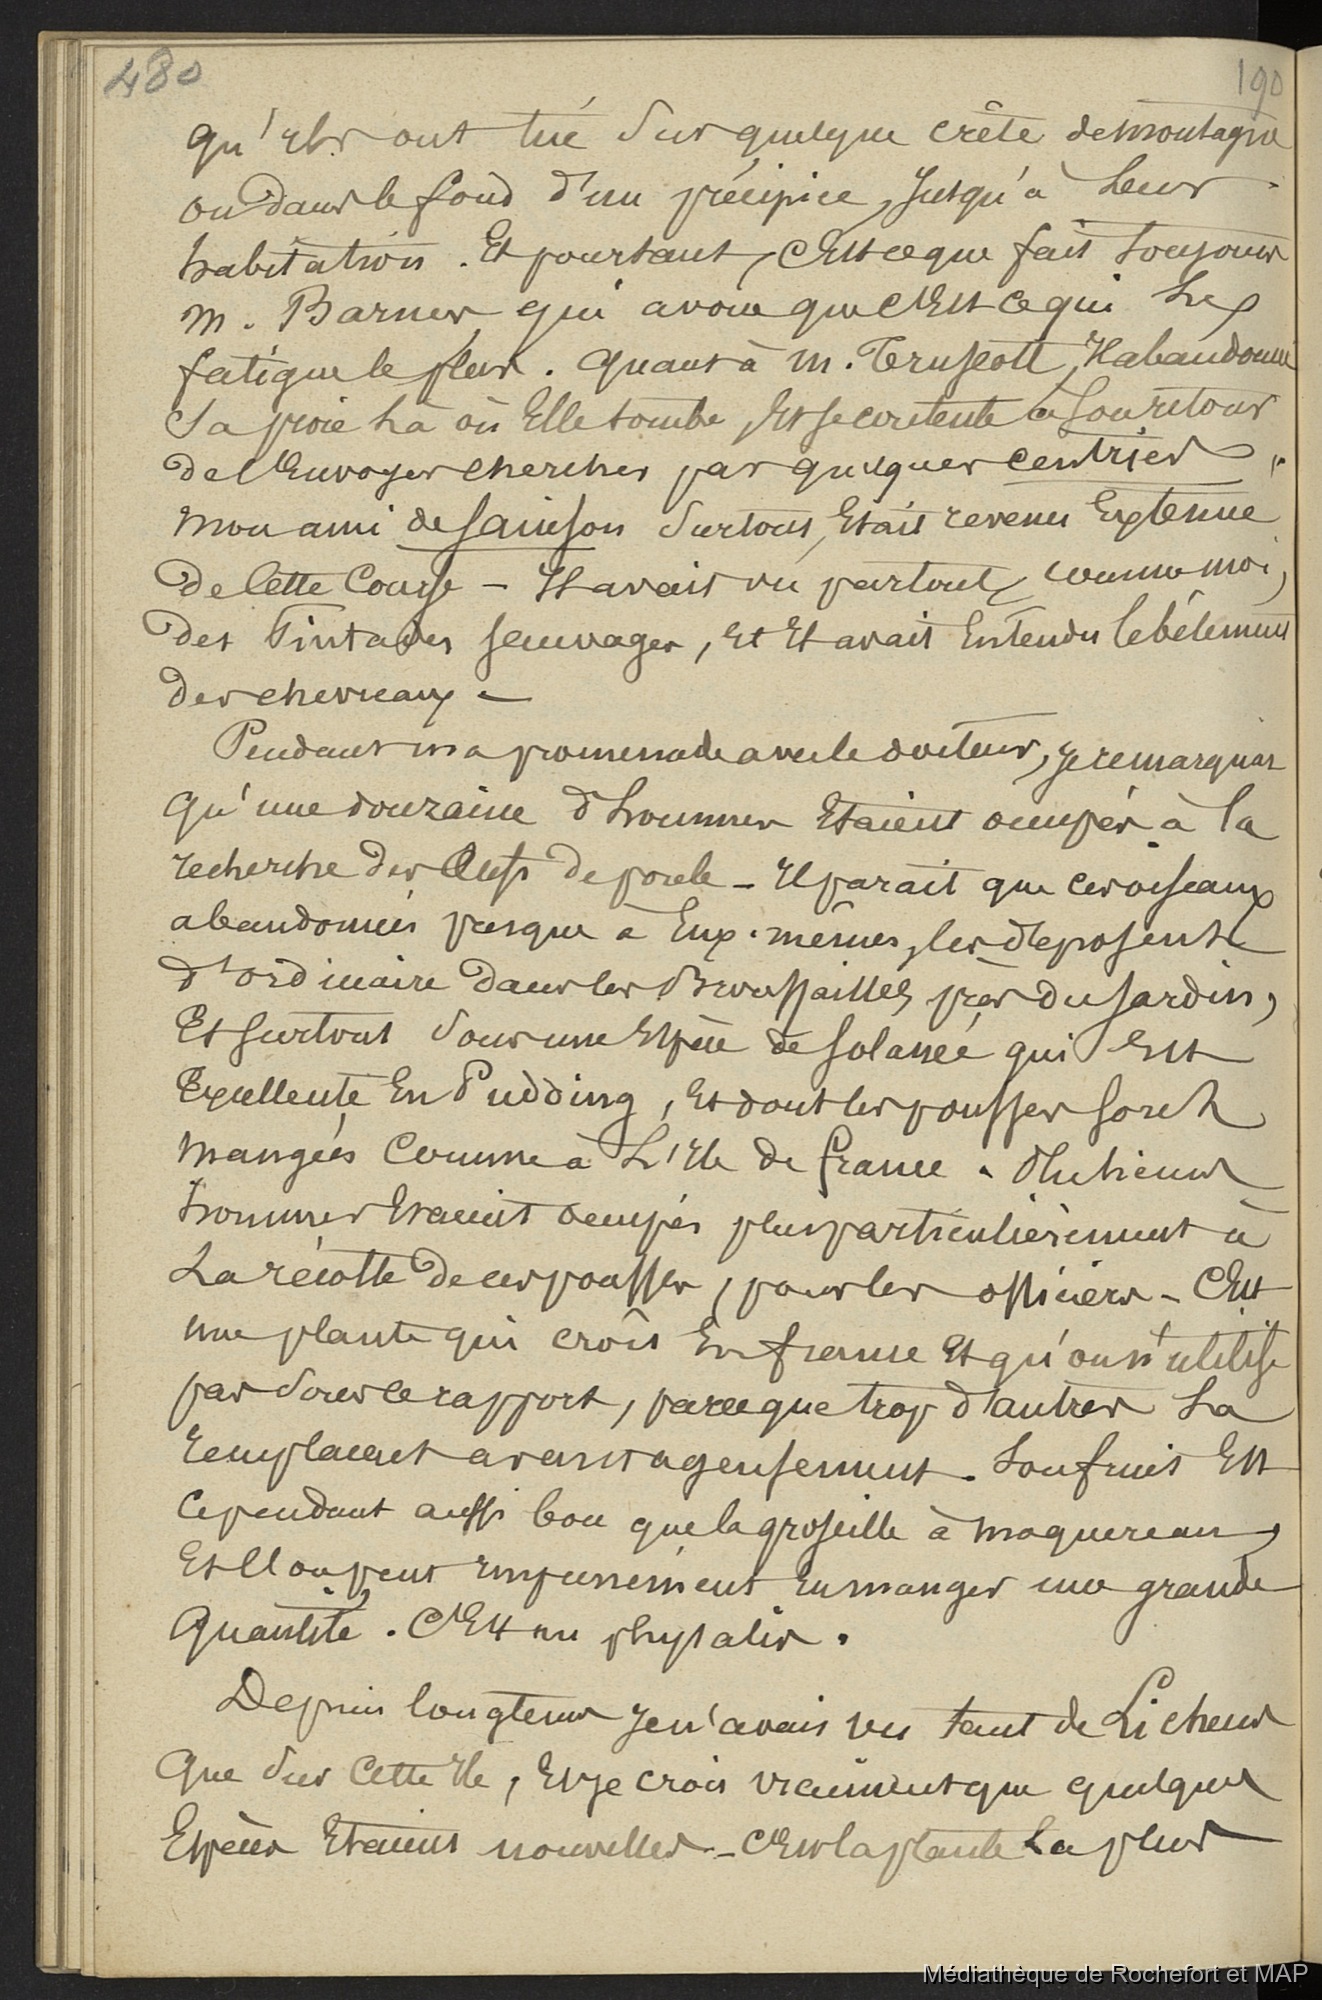 480
190
qu'ils ont tué sur quelque crête de montagne
ou dans le fond d'un précipice, jusqu'à leur
habitation. Et pourtant, c'est ce que fait toujours
M. Barnes, qui avoue que c'est ce qui le
fatigue le plus. Quant à M. Truscott, il abandonne
sa proie là où elle tombe, et se contente à son retour
de l'envoyer chercher par quelques centries.
Mon ami de Sainson surtout, était revenu exténué
de cette course – Il avait vu partout, comme moi,
des Pintades sauvages, et il avait entendu le bêlement
des chevreaux –
Pendant ma promenade avec le docteur, je remarquai
qu'une douzaine d'hommes étaient occupés à la
recherche des Œufs de poule – Il parait que ces oiseaux
abandonnés presque à eux-mêmes, les déposent
d'ordinaire dans les Broussailles près du jardin,
et surtout sous une espèce de solanée qui est
excellente en Pudding, et dont les pousses sont
mangées comme à l'Ile de france. Plusieurs
hommes étaient occupés plus particulièrement à
la récolte de ces pousses, pour les officiers – C'est
une plante qui croît en france et qu'on n'utilise
pas sous ce rapport, parceque trop d'autres la
remplacent avantageusement. Son fruit est
cependant aussi bon que la groseille à maquereau,
et l'on peut impunément en manger une grande
quantité. C'est un physalis.
Depuis longtems je n'avais vu tant de Lichens
que sur cette Ile, et je crois vraiment que quelques
espèces étaient nouvelles – C'est la plante la plus
Médiathèque de Rochefort et MAP